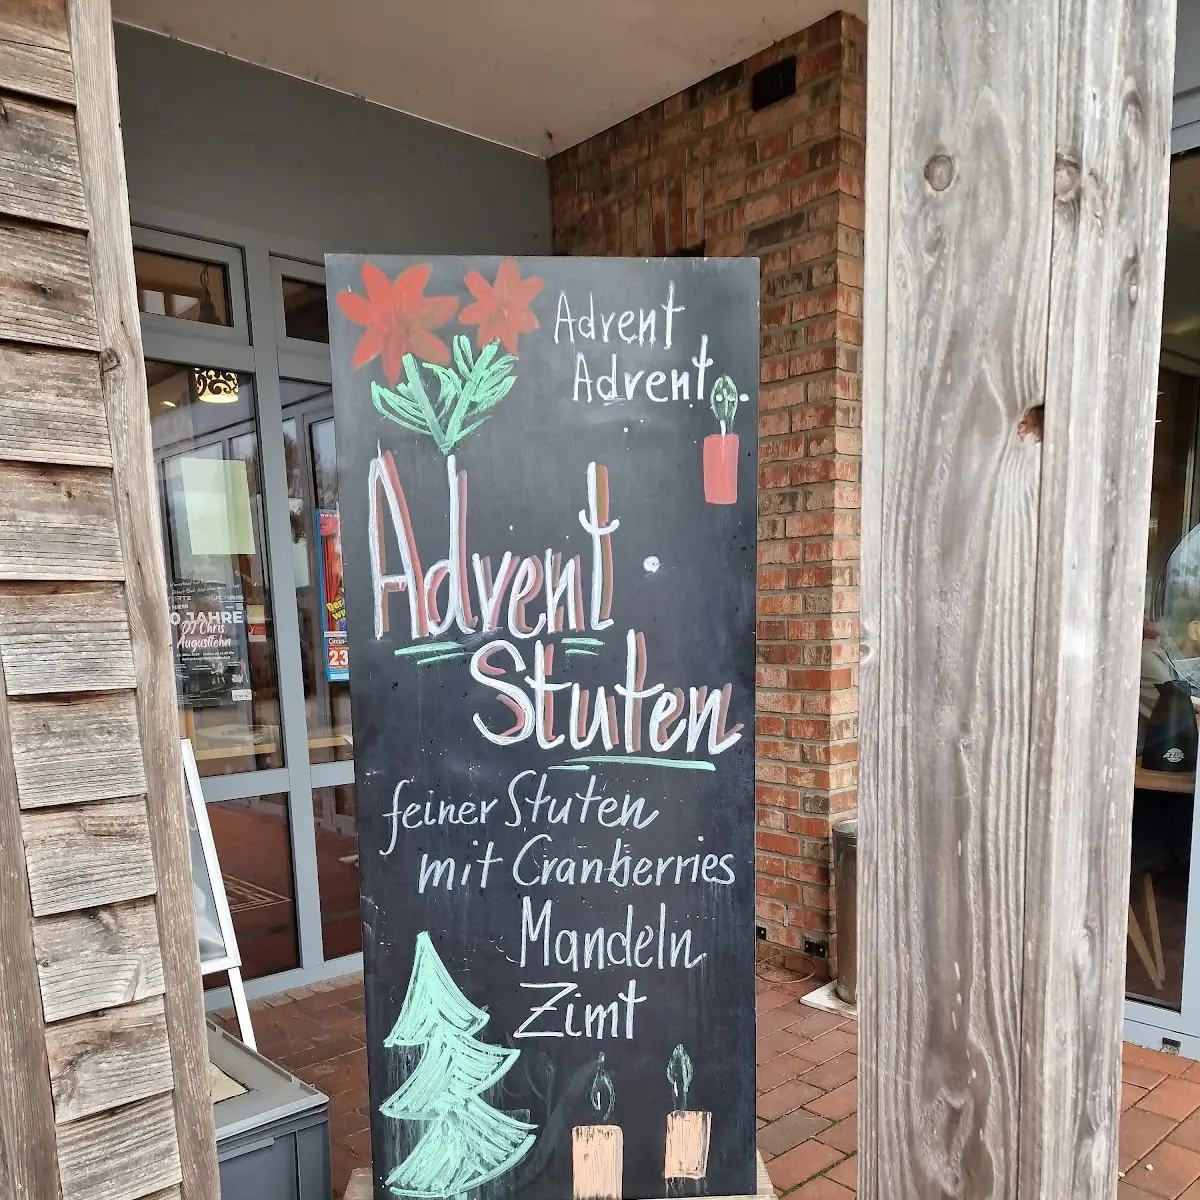 Advent
Advent...
Advent
Stuten
feiner Stuten
mit Cranberries
Mandeln
Zimt
0 JAHRE
DJ Chris
Augustfehn
Circus
23